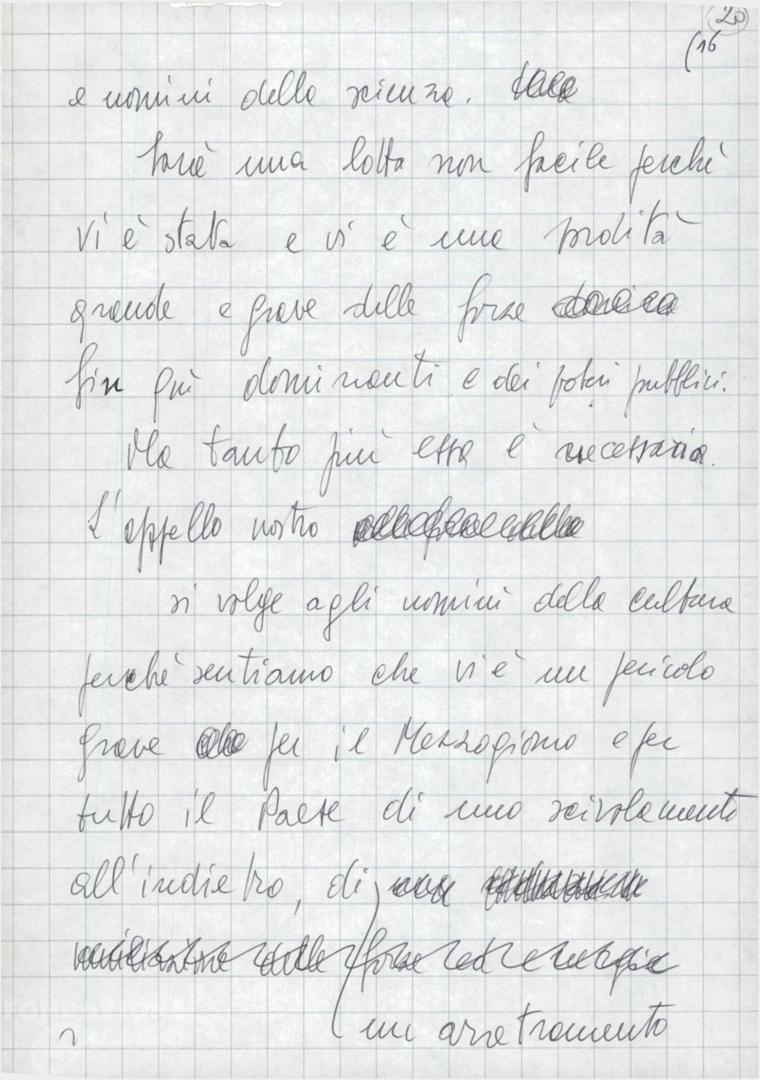 20
(16
e uomini della scienza.
Sarà una lotta non facile perché
vi è stata e vi è una sordità
grande e grave delle forze
fin qui dominanti e dei poteri pubblici.
Ma tanto più essa è necessaria.
L'appello nostro
si volge agli uomini della cultura
perché sentiamo che vi è un pericolo
grave per il Mezzogiorno e per
tutto il Paese di uno scivolamento
all'indietro, di
un arretramento